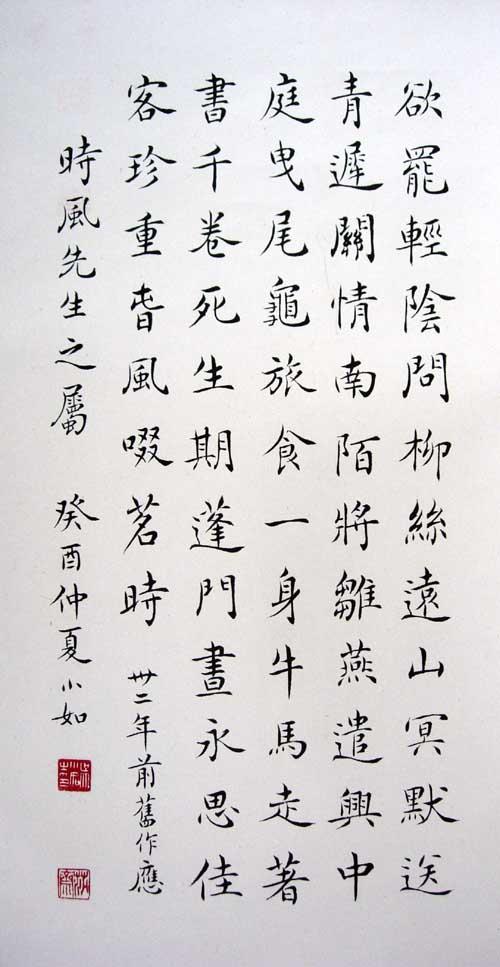 欲罷輕陰問柳絲遠山冥默送
青遲關情南陌將雛燕遣興中
庭曳尾龜旅食一身牛馬走著
書千卷死生期蓬門晝永思佳
客珍重昔風啜茗時 卅二年前舊作應
時風先生之屬 癸酉仲夏小如